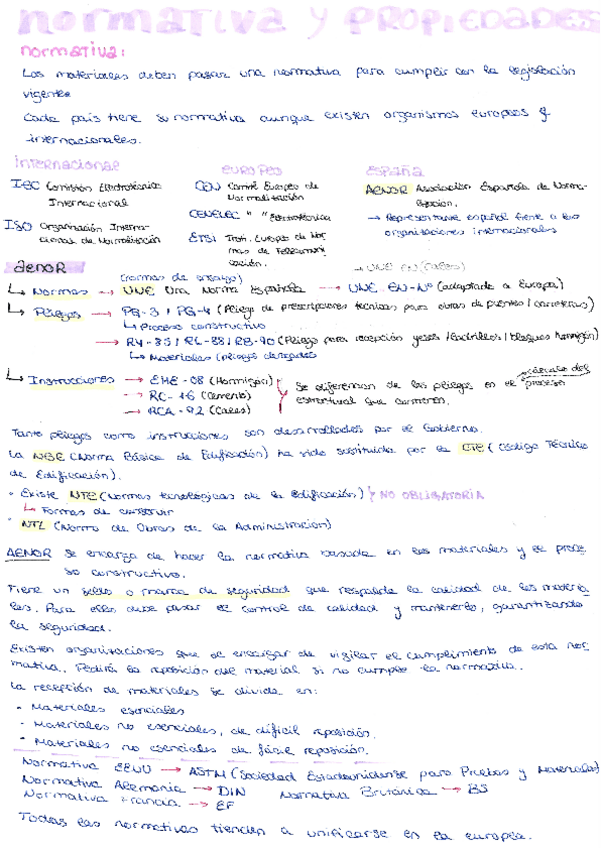 normativa y PROPIEDADES
normativa:
Los materiales deben pasar una normativa para cumplir con la legislación
vigente.
Cada país tiene su normativa aunque existen organismos europeos y
internacionales.
Internacional
IEC Comisión Electrotécnica
Internacional
ISO Organización Interna-
cional de Normalización
europeo
CEN Comité Europeo de
Normalización
CENELEC " " Electrotécnica
ETSI Inst. Europeo de Nor
mas de Telecomuni
cación.
España
AENOR Asociación Española de Norma-
lización.
→ Representante español frente a las
organizaciones internacionales
aenor
(normas de ensayo)
→ UNE EN (calles)
↳ Normas → UNE Una Norma Española → UNE EN-Nº (adaptada a Europa)
↳ Pliegos → PG-3 / PG-4 (Pliego de prescripciones técnicas para obras de puentes / carreteras)
↳ Proceso constructivo
→ RY-85 / RL-88 / RB-90 (Pliego para recepción yesos / ladrillos / bloques hormigón)
↳ Materiales (pliegos derogados
↳ Instrucciones → EHE-08 (Hormigón)
→ RC-16 (Cemento)
→ RCA-92 (Cales)
Se diferencian de los pliegos en el proceso
cálculo del
estructural que contienen.
Tanto pliegos como instrucciones son desarrollados por el Gobierno.
La NBE (Norma Básica de Edificación) ha sido sustituida por la CTE (Código Técnico
de Edificación).
• Existe NTE (Normas tecnológicas de la Edificación) } NO OBLIGATORIA
↳ Formas de construir
• NTL (Norma de Obras de la Administración)
AENOR se encarga de hacer la normativa basada en los materiales y el proce
so constructivo.
Tiene un sello o marca de seguridad que respalda la calidad de los materia
les. Para ello debe pasar el control de calidad y mantenerlo, garantizando
la seguridad.
Existen organizaciones que se encargan de vigilar el cumplimiento de esta nor
mativa. Pedirá la reposición del material si no cumple la normativa.
La recepción de materiales se divide en:
- Materiales esenciales
- Materiales no esenciales, de difícil reposición.
- Materiales no esenciales de fácil reposición.
Normativa EEUU → ASTM (Sociedad Estadounidense para Pruebas y Materiales)
Normativa Alemania → DIN Normativa Británica → BS
Normativa Francia → EF
Todas las normativas tienden a unificarse en la europea.